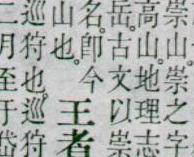 崇山之字
高山。地理志
岳。古文以崇
名。即今
山也。
王者
巡狩也。巡狩
二月至于岱